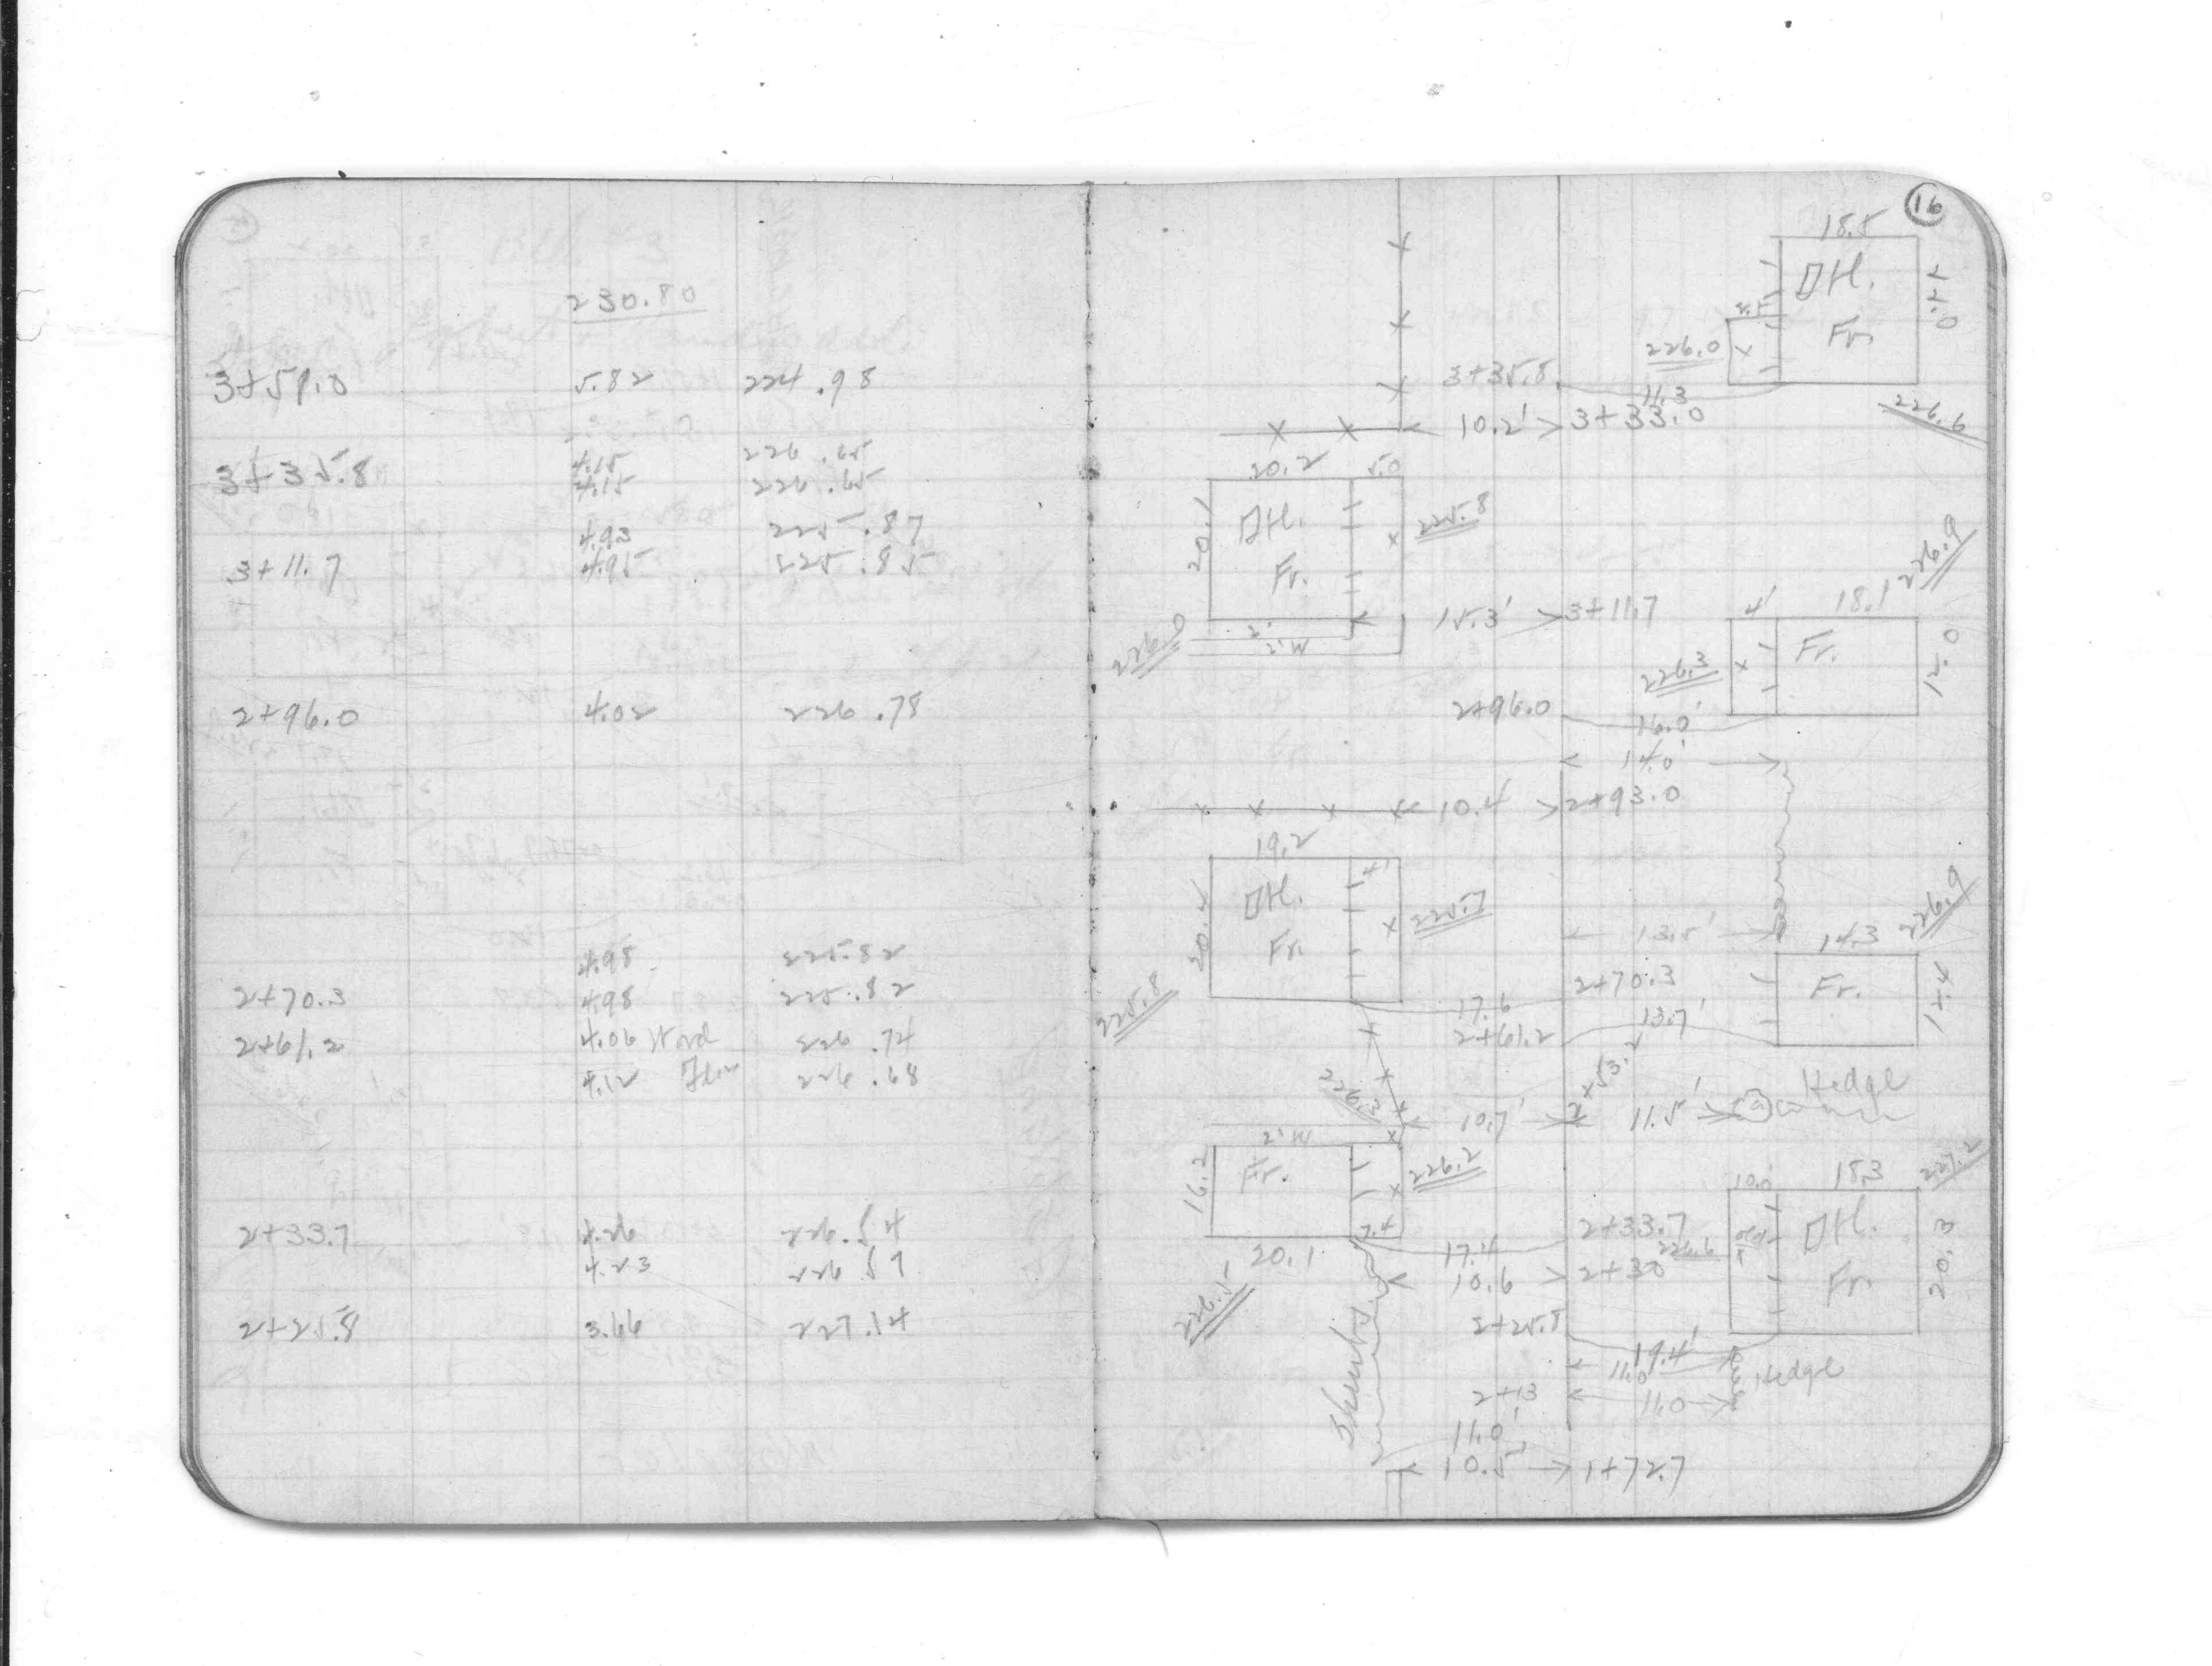 230.80
3+59.0 5.82 224.98
4.15 226.65
3+35.8 4.15 226.65
4.93 225.87
3+11.7 4.95 225.85
2+96.0 4.02 226.78
4.98 225.82
2+70.3 4.98 225.82
2+61.2 4.06 226.74
4.12 226.68
2+33.7 4.26 226.54
4.23 226.57
2+25.8 3.66 227.14
16
18.5
Fr.
226.0
3+35.8
11.3
10.2' 3+33.0
226.6
20.2 5.0
20.1
Fr.
225.8
226.9
15.3' 3+11.7
4' 18.1
2'
2'W
226.0
Fr.
226.3
12.0
2+96.0
16.0'
14.0'
10.4 2+93.0
19.2
4'
20.4
Fr.
225.7
226.9
13.5'
14.3
225.8
17.6
2+70.3
Fr.
12.4
2+61.2
13.7'
2+53.2
Hedge
226.3
10.7' 11.5'
2'W
16.2
Fr.
226.2
10.0 18.3
227.2
7.4
20.1
17.4
2+33.7
226.6
Fr.
20.3
10.6 2+30
226.5
2+25.8
19.4'
11.0
Shrubs
2+13
11.0
Hedge
11.0'
10.5 1+72.7